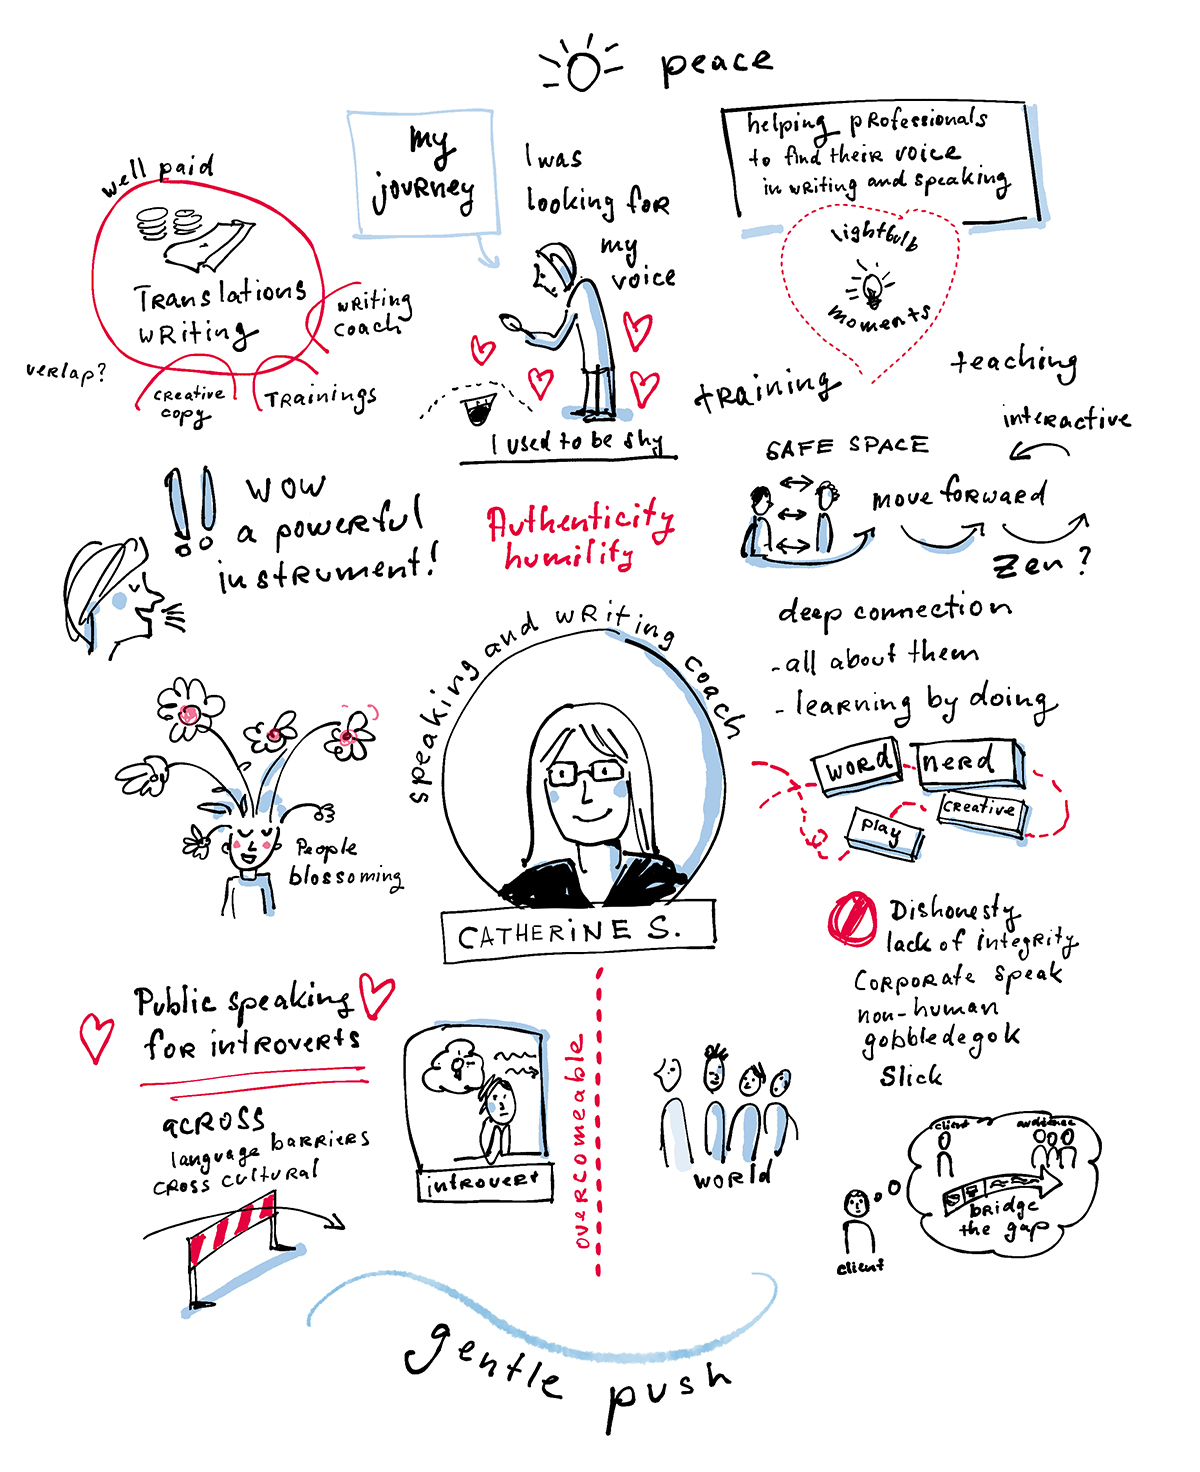 peace
my
journey
I was
looking for
my
voice
I used to be shy
helping professionals
to find their voice
in writing and speaking
lightbulb
moments
well paid
Translations
writing
writing
coach
verlap?
creative
copy
Trainings
training
teaching
interactive
SAFE SPACE
move forward
Zen?
deep connection
- all about them
- learning by doing
WOW
a powerful
instrument!
Authenticity
humility
speaking and writing coach
CATHERINE S.
People
blossoming
word
nerd
creative
play
Dishonesty
lack of integrity
corporate speak
non-human
gobbledegok
Slick
Public speaking
for introverts
across
language barriers
cross cultural
introvert
overcomeable
world
client
audience
bridge
the gap
client
gentle push